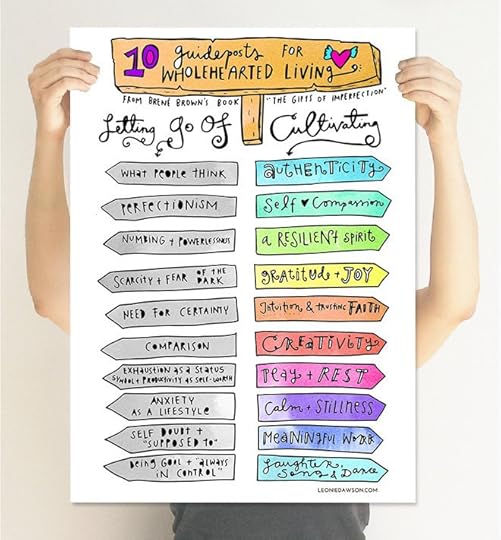 10 guideposts FOR
WHOLEHEARTED LIVING
FROM BRENÉ BROWN'S BOOK "THE GIFTS OF IMPERFECTION"
Letting go OF
Cultivating
WHAT PEOPLE THINK
AUTHENTICITY
PERFECTIONISM
Self ♥ Compassion
NUMBING + POWERLESSNESS
a RESILIENT SPIRIT
SCARCITY + FEAR OF THE
DARK
gratitude + JOY
NEED FOR CERTAINTY
Intuition & trusting FAITH
COMPARISON
CREATIVITY
EXHAUSTION AS A STATUS
SYMBOL + PRODUCTIVITY AS SELF-WORTH
PLAY + REST
ANXIETY
AS A LIFESTYLE
Calm + STILLNESS
SELF DOUBT +
"SUPPOSED TO"
MEANINGFUL WORK
BEING COOL + "ALWAYS
IN CONTROL"
Laughter,
Song & Dance
LEONIEDAWSON.COM